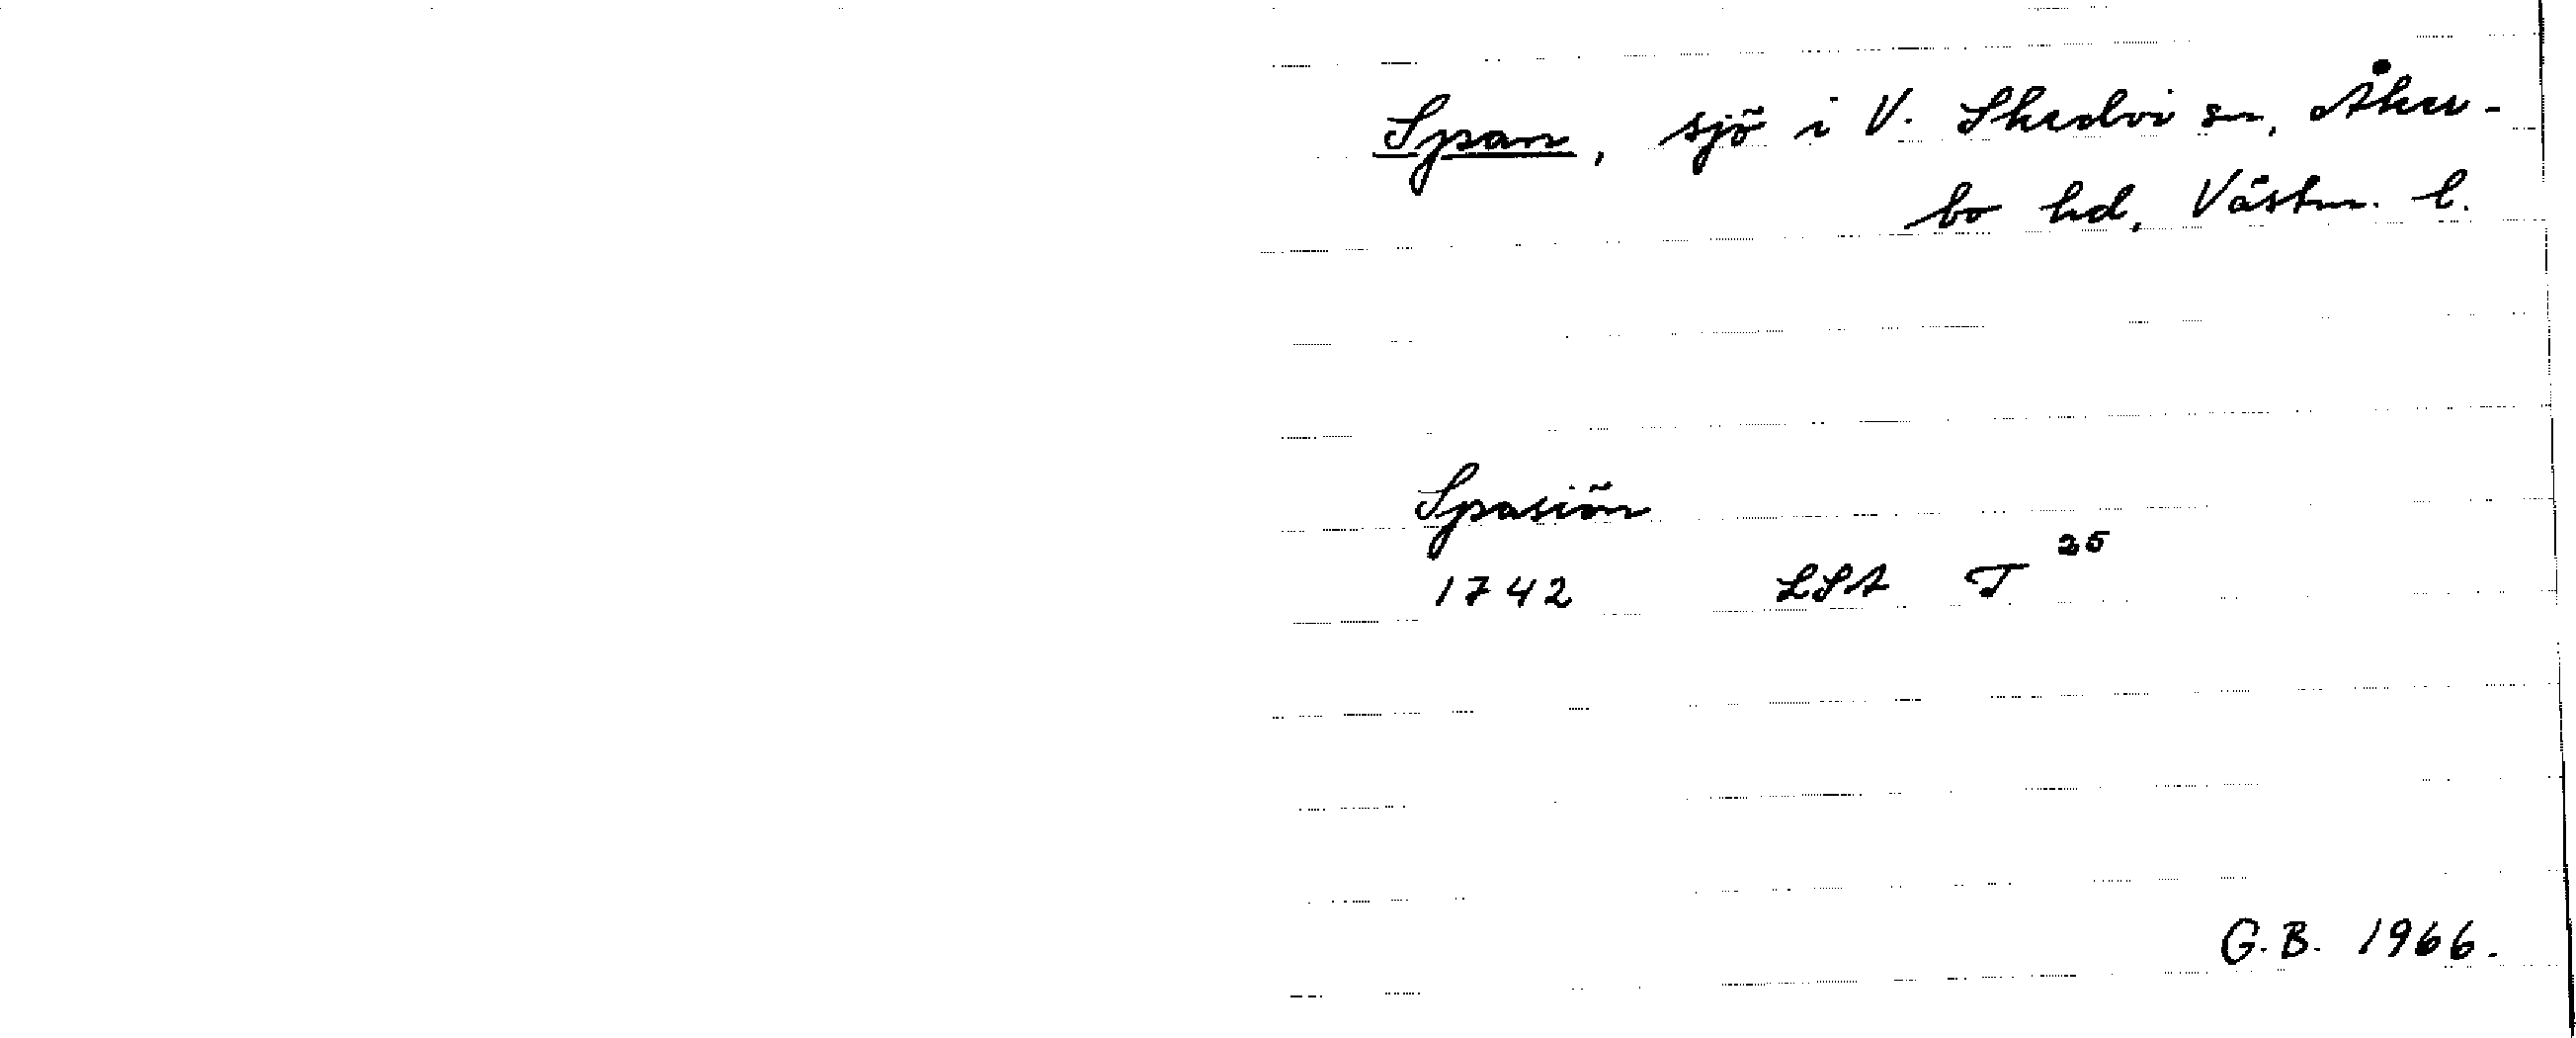 Span, sjö i V. Skedvi sn, Åker-
bo hd, Västm. l.
Spasiön
1742 LSA T 25
G.B. 1966.